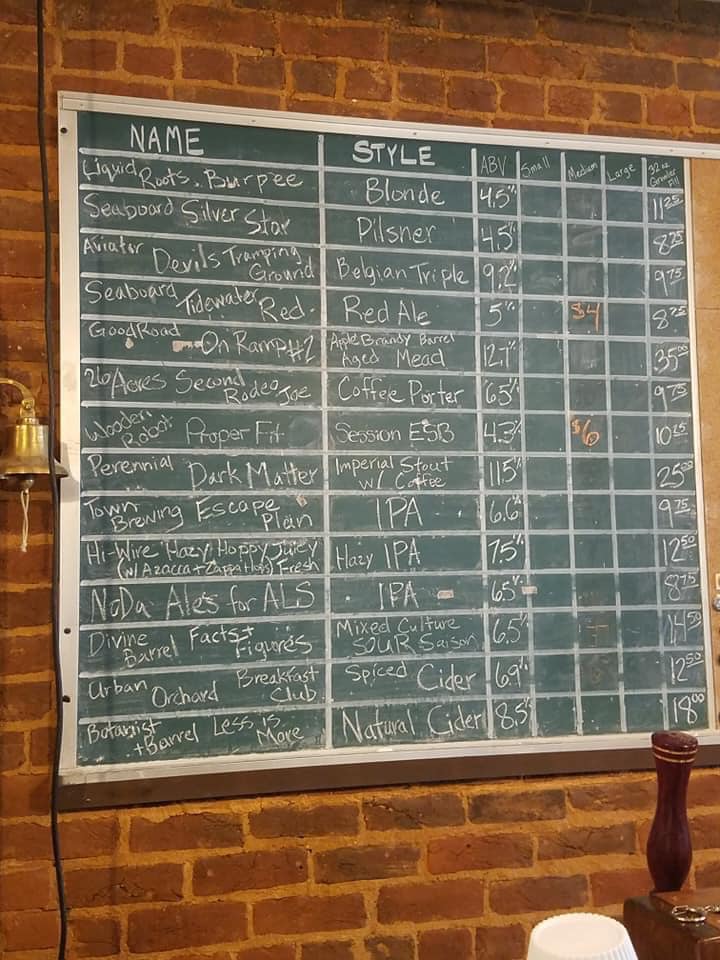 NAME STYLE ABV Small Medium Large 32 oz Growler Fill
Liquid Roots. Burpee Blonde 4.5% 11 25
Seaboard Silver Star Pilsner 4.5% 8 75
Aviator Devils Tramping Ground Belgian Triple 9.2% 9 75
Seaboard Tidewater Red. Red Ale 5% $4 8 75
GoodRoad On Ramp #2 Apple Brandy Barrel Aged Mead 12.1% 35 00
26 Acres Second Rodeo Joe Coffee Porter 6.5% 9 75
Wooden Robot Proper Fit Session ESB 4.3% $6 10 25
Perennial Dark Matter Imperial Stout w/ Coffee 11.5% 25 00
Town Brewing Escape Plan IPA 6.6% 9 75
Hi-Wire Hazy Hoppy Juicy (w/ Azacca + Zappa Hops) Fresh Hazy IPA 7.5% 12 50
NoDa Ales for ALS IPA 6.5% 8 75
Divine Barrel Facts + Figures Mixed Culture SOUR Saison 6.5% 14 50
Urban Orchard Breakfast Club Spiced Cider 6.9% 12 50
Botanist + Barrel Less is More Natural Cider 8.5% 18 00